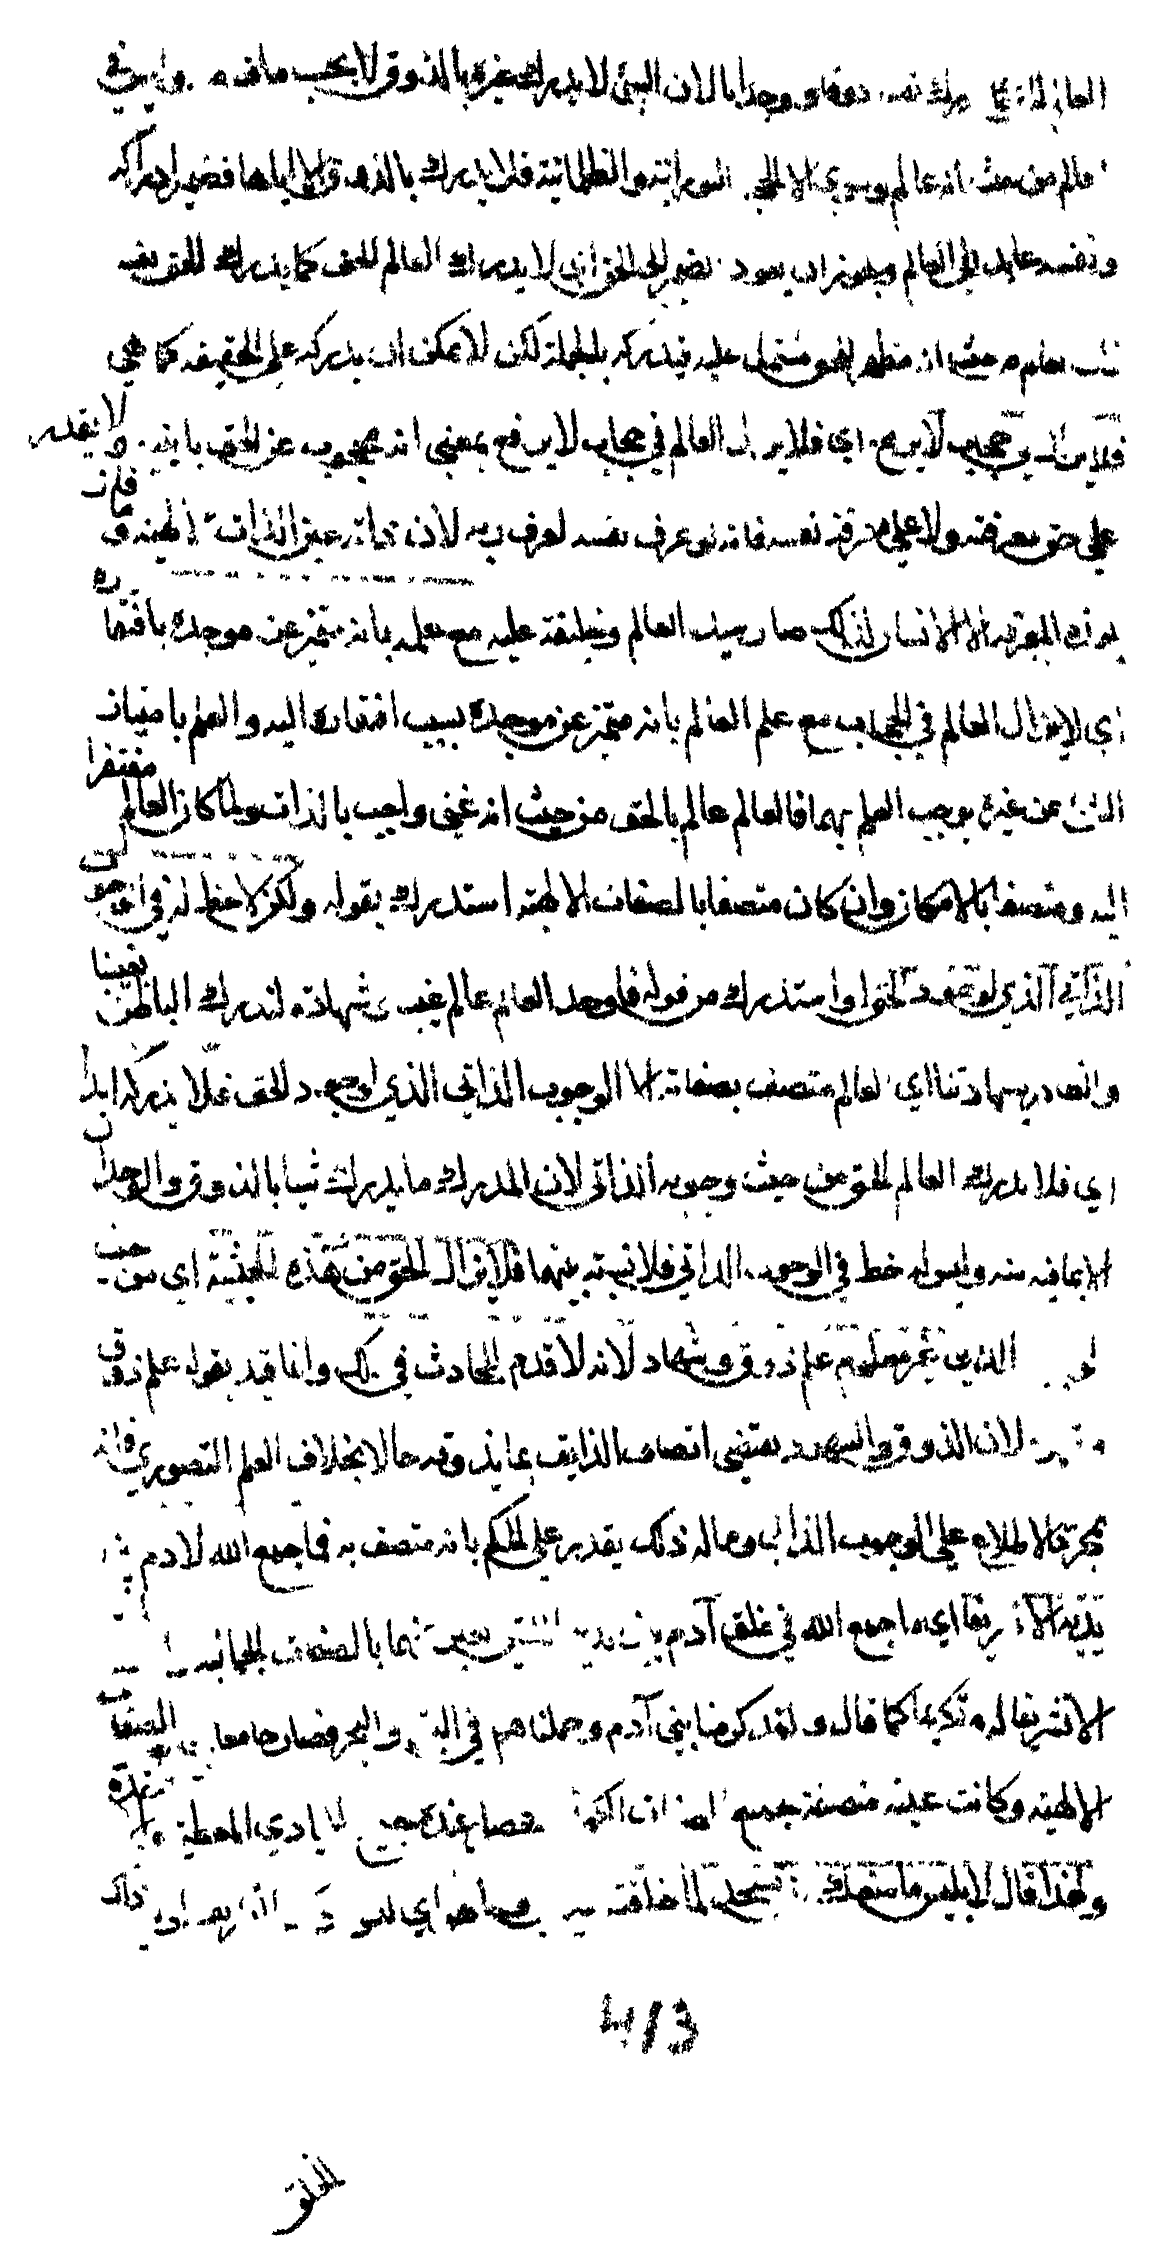 نفسه ذوقا ووجدانا لان الشئ لا يدرك غيره بالذوق الا بحسب ما فيه منه وليس في
العالم من حيث انه عالم وسوى الا الحجب النورانية والظلمانية فلا يدرك بالذوق الا اياها فضمير ادراكه
ونفسه عايد الى العالم ويجوز ان يعود ضمير الى الحق اى لا يدرك العالم الحق كما يدرك الحق نفسه
العالم من حيث انه مظهر الحق مشتمل عليه فيدركه بالجملة لكن لا يمكن ان يدركه على الحقيقه كما هي
فلا يزال في حجاب لا يرفع اى فلا يزال العالم في حجاب لا يرفع بمعنى انه محجوب عن الحق بانيته ولا يقدر
على حق معرفته ولا على معرفة نفسه فانه لو عرف نفسه لعرف ربه لان ذاته عين الذات الالهية وما فاز
بهذه المعرفه الا الانسان لذلك صار سيد العالم وخليفة عليه مع علمه بانه متميز عن موجده بافتقاره
اى لا يزال العالم في الحجاب مع علم العالم بانه متميز عن موجده بسبب افتقاره اليه والعلم بامتياز
الشئ عن غيره يوجب العلم بهما فالعالم عالم بالحق من حيث انه غني واجب بالذات ولما كان العالم مفتقرا
اليه ومتصفا بالامكان وان كان متصفا بالصفات الالهية استدرك بقوله ولكن لا حظ له في الوجوب
الذاتي الذي لوجود الحق او استدرك من قوله فاوجد العالم عالم غيب وشهادة لندرك الباطن بغيبنا
والظاهر بشهادتنا اى العالم متصف بصفاته الا الوجوب الذاتي الذي لوجود الحق فلا يدركه ابدا
اى فلا يدرك العالم الحق من حيث وجوبه الذاتي لان المدرك ما يدرك شيا بالذوق والوجدان
الا بما فيه منه وليس له حظ في الوجوب الذاتي فلا نسبة بينهما فلا يزال الحق من هذه الحيثية اى من حيث
الوجوب الذاتي غير معلوم علم ذوق وشهود لانه لا قدم للحادث في ذلك وانما قيد بقوله علم ذوق
وشهود لان الذوق والشهود يقتضى اتصاف الذايق بما يذوقه حالا بخلاف العلم التصوري فانه
بمجرد الاطلاع على الوجوب الذاتي وماله ذلك يقدر على الحكم بانه متصف به فما جمع الله لادم بين
يديه الا تشريفا اى ما جمع الله في خلق آدم بين يديه اللتين يعبر عنهما بالصفات الجمالية والجلالية
الا تشريفا له وتكريما كما قال ولقد كرمنا بني آدم وحملناهم في البر والبحر فصار جامعا لجميع الصفات
الالهية وكانت عينه متصفة بجميع الصفات الكونية فصار عنده جميع الايادي المعطية والاخذة
ولهذا قال لابليس ما منعك ان تسجد لما خلقت بيدى وما هو اى ليس ذلك
4/3
الخلق